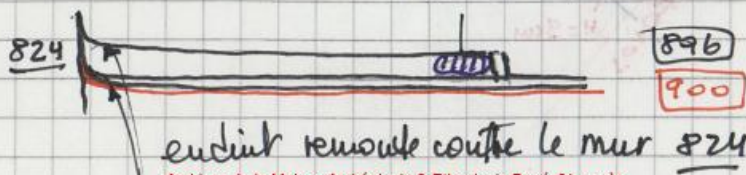 824
896
900
enduit remonte contre le mur 824